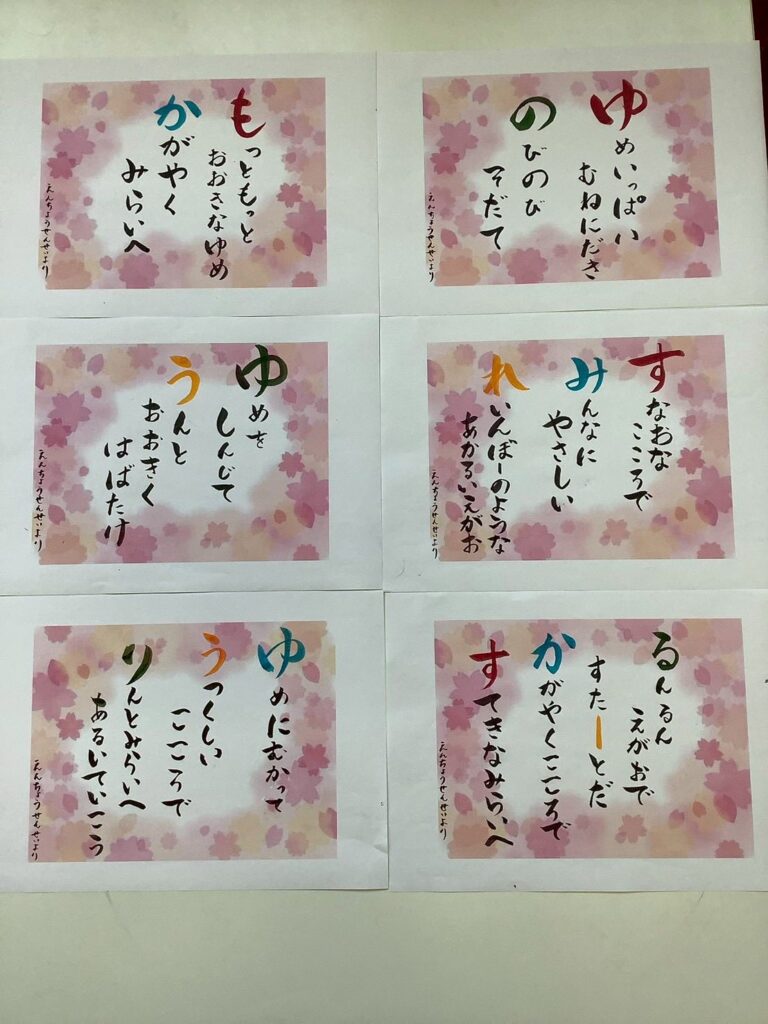 ゆめいっぱい
むねにだき
のびのび
そだて
もっともっと
おおきなゆめ
かがやく
みらいへ
えんちょうせんせいより
えんちょうせんせいより
すなおな
こころで
みんなに
やさしい
れいんぼーのような
あかるいえがお
えんちょうせんせいより
ゆめを
しんじて
うんと
おおきく
はばたけ
えんちょうせんせいより
るんるん
えがおで
すたーとだ
かがやくこころで
すてきなみらいへ
えんちょうせんせいより
ゆめにむかって
うつくしい
こころで
りんとみらいへ
あるいていこう
えんちょうせんせいより